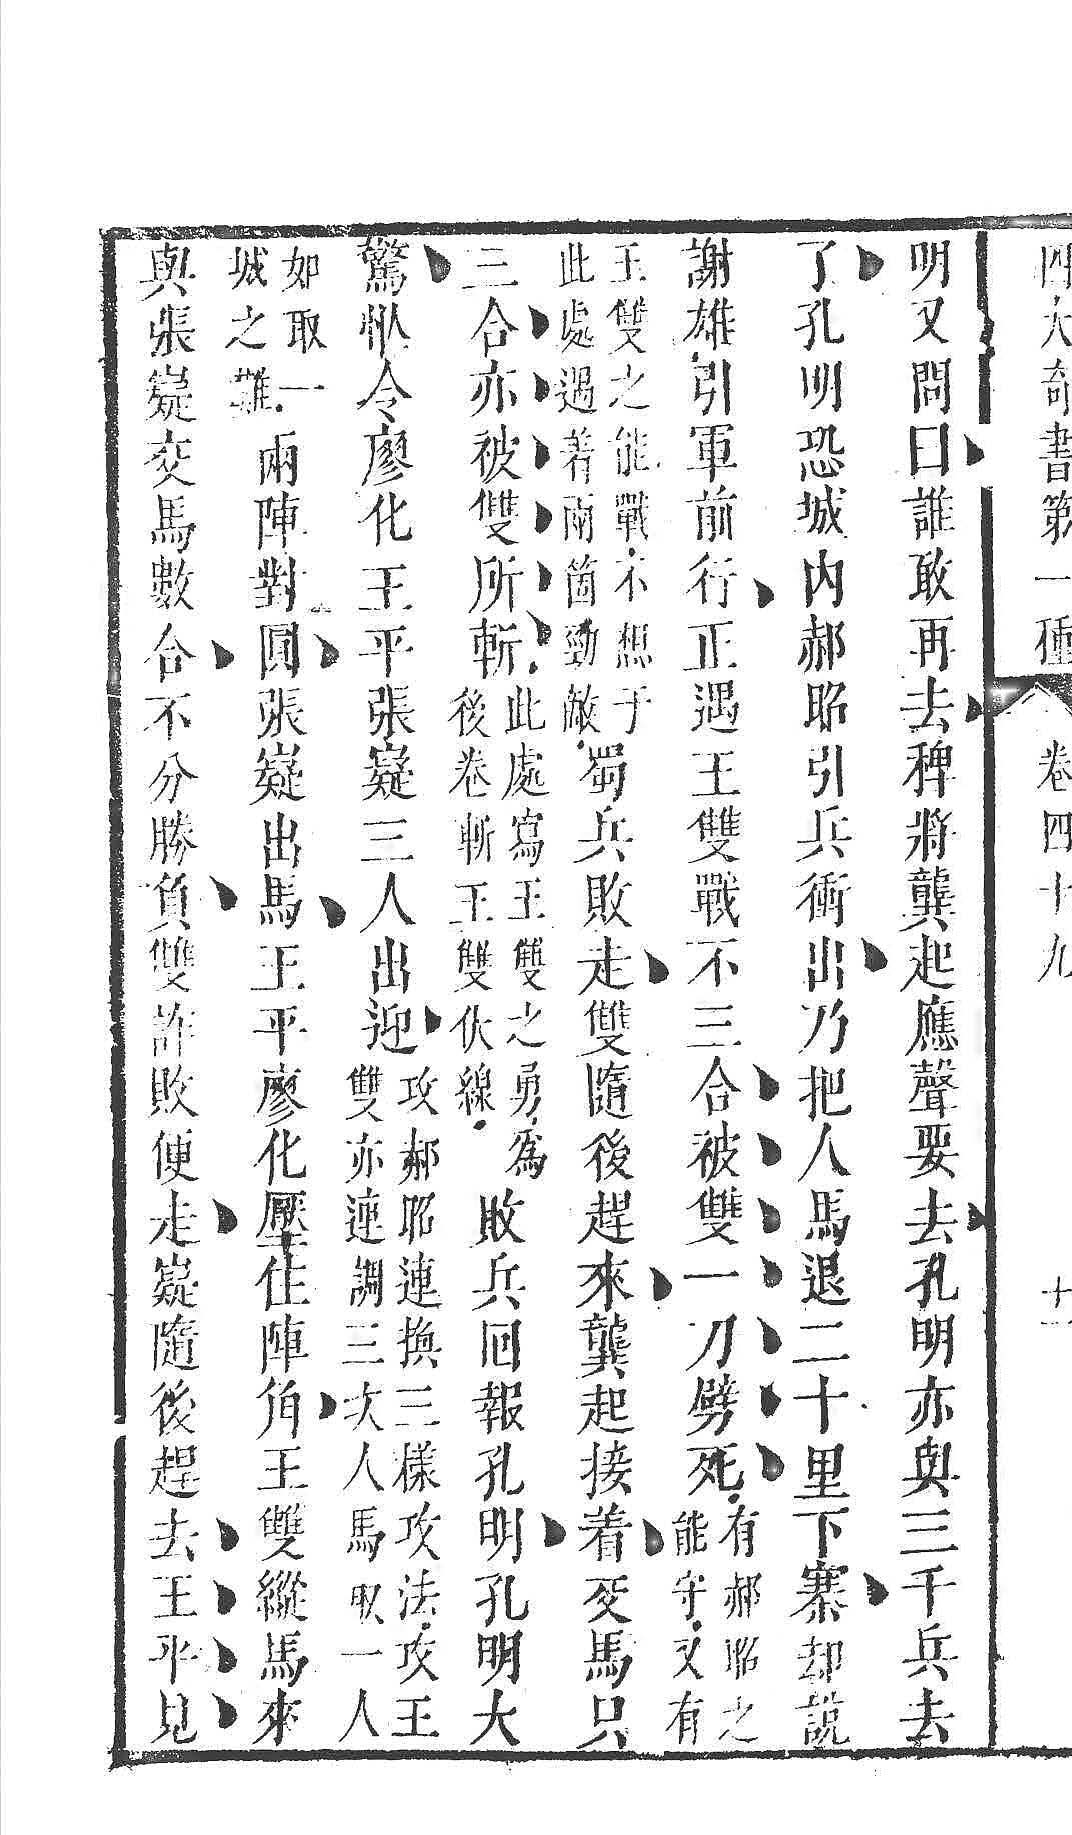 四大奇書第一種 卷四十九 十一
明又問曰誰敢再去裨將龔起應聲要去孔明亦與三千兵去
了孔明恐城內郝昭引兵衝出乃把人馬退二十里下寨却說
謝雄引軍前行正遇王雙戰不三合被雙一刀劈死有郝昭之能守又有
王雙之能戰不想于此處遇着兩箇勁敵蜀兵敗走雙隨後趕來龔起接着交馬只
三合亦被雙所斬此處寫王雙之勇為後卷斬王雙伏線敗兵回報孔明孔明大
驚忙令廖化王平張嶷三人出迎攻郝昭連換三樣攻法攻王雙亦連調三次人馬取一人
如取一城之難兩陣對圓張嶷出馬王平廖化壓住陣角王雙縱馬來
與張嶷交馬數合不分勝負雙詐敗便走嶷隨後趕去王平見